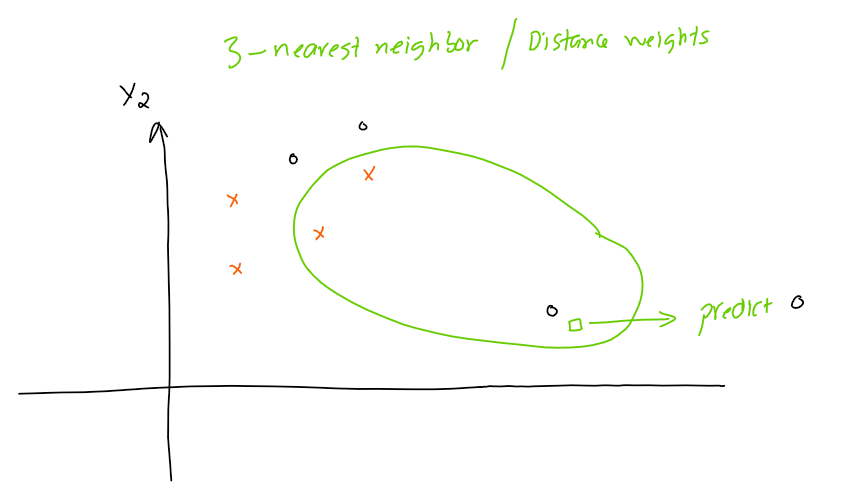 3-nearest neighbor / Distance weights
Y2
predict o